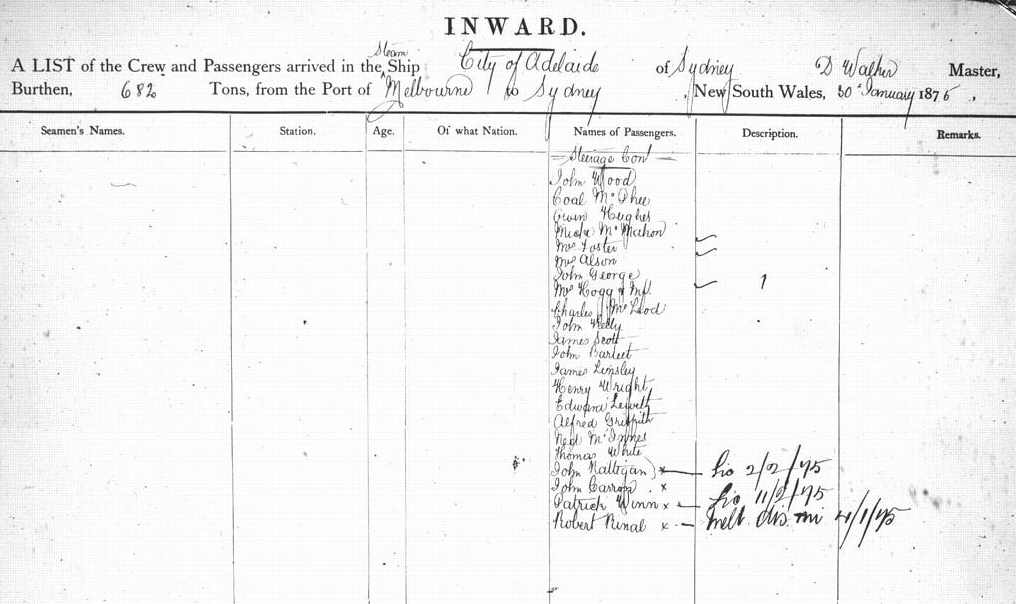 INWARD.
A LIST of the Crew and Passengers arrived in the Steam Ship City of Adelaide of Sydney D Walker Master,
Burthen, 682 Tons, from the Port of Melbourne to Sydney, New South Wales, 30 January 1875,
Seamen's Names. Station. Age. Of what Nation. Names of Passengers. Description. Remarks.
Steerage Con
John Wood
Coal McPhee
Owen Hughes
McMahon
Mrs Foster
Mrs Alson
John George
Mrs Hogg & Inf. 1
Charles McLeod
John Kelly
James Scott
John Bartlet
James Linsley
Henry Wright
Edward
Alfred Griffith
Ned McInnes
Thomas White
John Hattigan x 2/2/75
John x
Patrick Winn x 11/2/75
Robert x Melb. dis 4/1/75